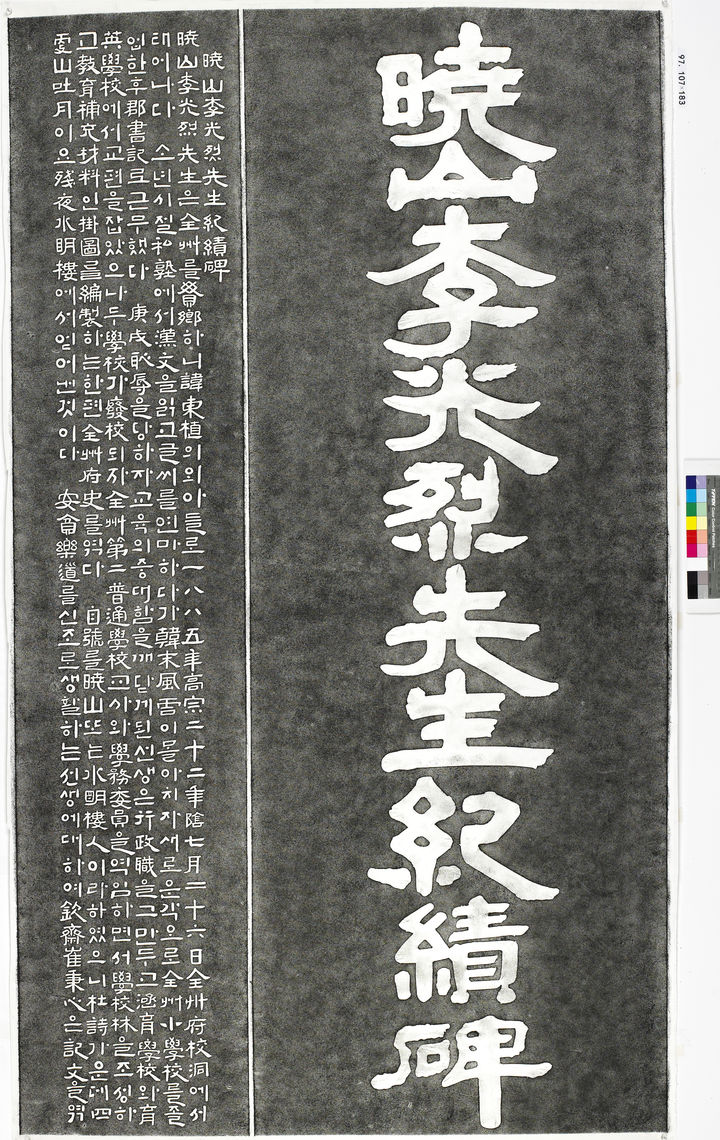 暁山李光烈先生紀績碑
暁山李光烈先生紀績碑
暁山李光烈先生은全州를貫鄕하니諱東植의외아들로一八八五年高宗二十二年陰七月二十六日全州府校洞에서
태어나다 소년시절私塾에서漢文을읽고글씨를연마하다가韓末風雲이몰아치자새로운각으로全州小學校를졸
업한후郡書記로근무했다 庚戌恥辱을당하자교육의중대함을깨닫게된선생은行政職을그만두고涵育學校와育
英學校에서교편을잡았으나두學校가廢校되자全州第二普通學校교사와學務委員을역임하면서學校林을조성하
고敎育補充材料인掛圖를編製하는한편全州府史를엮다 自號를暁山또는水明樓人이라하였으니杜詩가운데四
更山吐月이오殘夜水明樓에서얻어낸것이다 安貧樂道를신조로생활하는선생에대하여欽齋崔秉心은記文을엮
97. 107-183